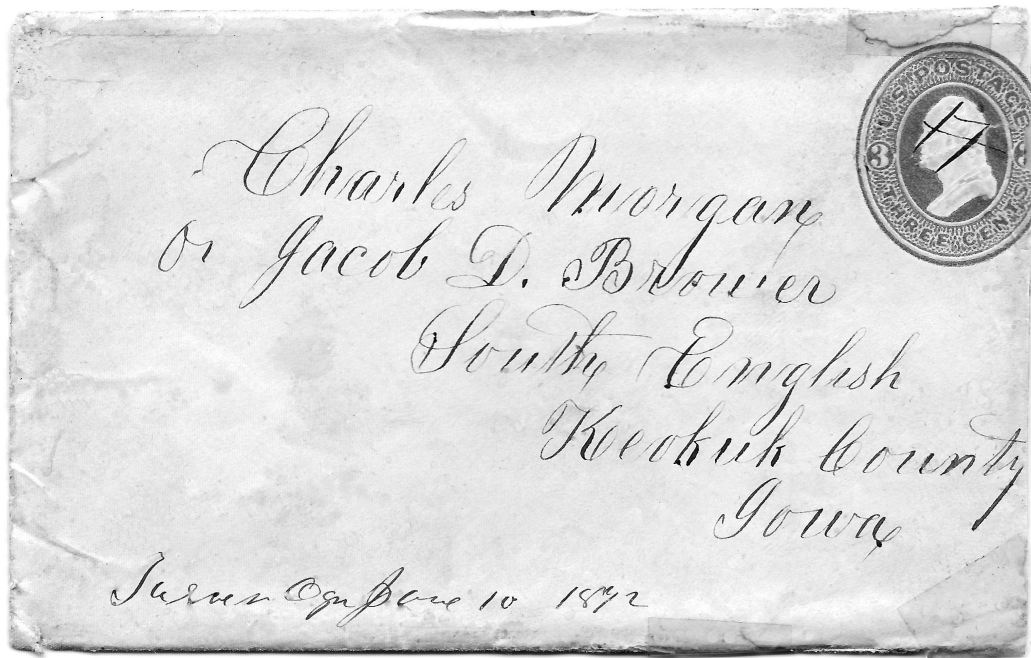 U.S. POSTAGE
3
THREE CENTS
17
Charles Morgan
Or Jacob D. Brower
South English
Keokuk County
Iowa
Turner Ogn June 10 1872